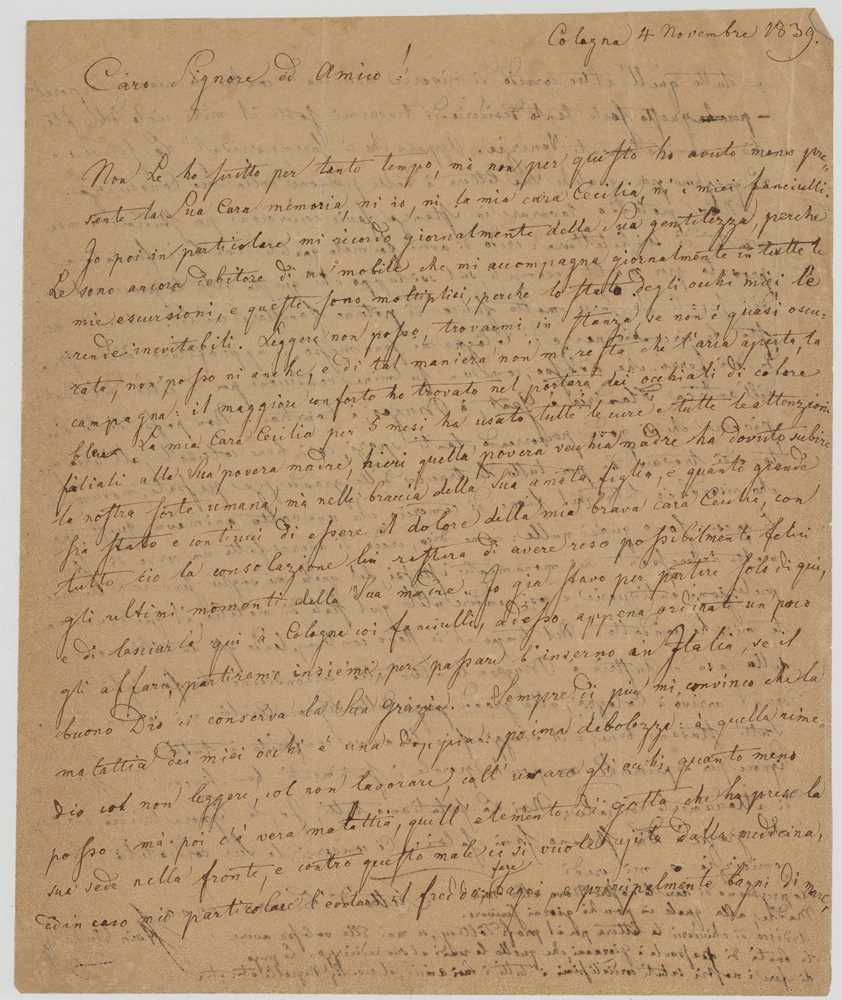 Cologna 4 Novembre 1839.
Caro Signore ed Amico!
Non Le ho scritto per tanto tempo, mà non per questo ho avuto meno pre=
sente la Sua cara memoria, ni io, ni la mia cara Cecilia, ni i miei fanciulli.
Io poi in particolare mi ricordo giornalmente della Sua gentilezza, perche
Le sono ancora debitore di un mobile che mi accompagna giornalmente in tutte le
mie escursioni, e queste sono moltiplici, perche lo stato degli occhi miei le
rende inevitabili. Leggere non posso, trovarmi in stanza se non è quasi oscu=
rata, non posso ni anche, e di tal maniera non mi resta che l'aria aperta, la
campagna: il maggiore conforto ho trovato nel portare dei occhiali di colore
bleu. La mia cara Cecilia per 5 mesi ha usato tutte le cure e tutte le attenzioni
filiali alla Sua povera madre, hieri quella povera vecchia madre ha dovuto subire
la nostra sorte umana, mà nelle braccia della Sua amata figlia, e quanto grande
sia stato e continui di essere il dolore della mia brava cara Cecilia, con
tutto ciò la consolazione lui restera di avere reso possibilmente felici
gli ultimi momenti della Sua madre. Io già stavo per partire solo di qui,
e di lasciarla qui à Cologna coi fanciulli, adesso, appena ordinati un poco
gli affari, partiremo insieme, per passare l'inverno in Italia, se il
buono Dio ci conserva la Sua Grazia. Sempre di più mi convinco che la
malattia dei miei occhi è una doppia: poima debolezza: à quella rime=
dio col non leggere, col non lavorare, coll' usare gli occhi quanto meno
posso: mà poi c'è vera malattia, quell' elemento di gotta che ha preso la
sua sede nella fronte, e contro questo male ci si vuole ajuto dalla medicina,
ed in caso mio particolare l'evitare il freddo, fare bagni e principalmente bagni di mare,